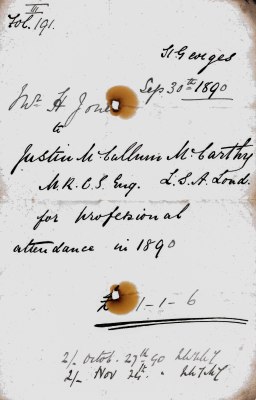 III
Fol. 191.
St Georges
Sep 30th 1890
Mr. H Jones
to
Justin McCallum McCarthy
M.R.C.S. Eng. L.S.A. Lond.
for profesional
attendance in 1890
£ 1-1-6
2/- Octob. 27th 90
2/- Nov 24th. "